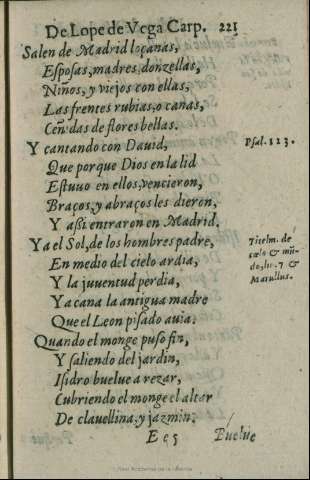 De Lope de Vega Carp. 221
Salen de Madrid loçanas,
Esposas, madres, donzellas,
Niños, y viejos con ellas,
Las frentes rubias, o canas,
Ceñidas de flores bellas.
Y cantando con Dauid,
Psal. 123.
Que porque Dios en la lid
Estuuo en ellos, vencieron,
Braços, y abraços les dieron,
Y assi entraron en Madrid.
Ya el Sol, de los hombres padre,
Titelm. de
cælo & mũ-
do, li. 7 &
Marullus.
En medio del cielo ardia,
Y la juuentud perdia,
Ya cana la antigua madre
Que el Leon pisado auia.
Quando el monge puso fin,
Y saliendo del jardin,
Isidro buelue a rezar,
Cubriendo el monge el altar
De clauellina, y jazmin.
Ee 5
Buelue